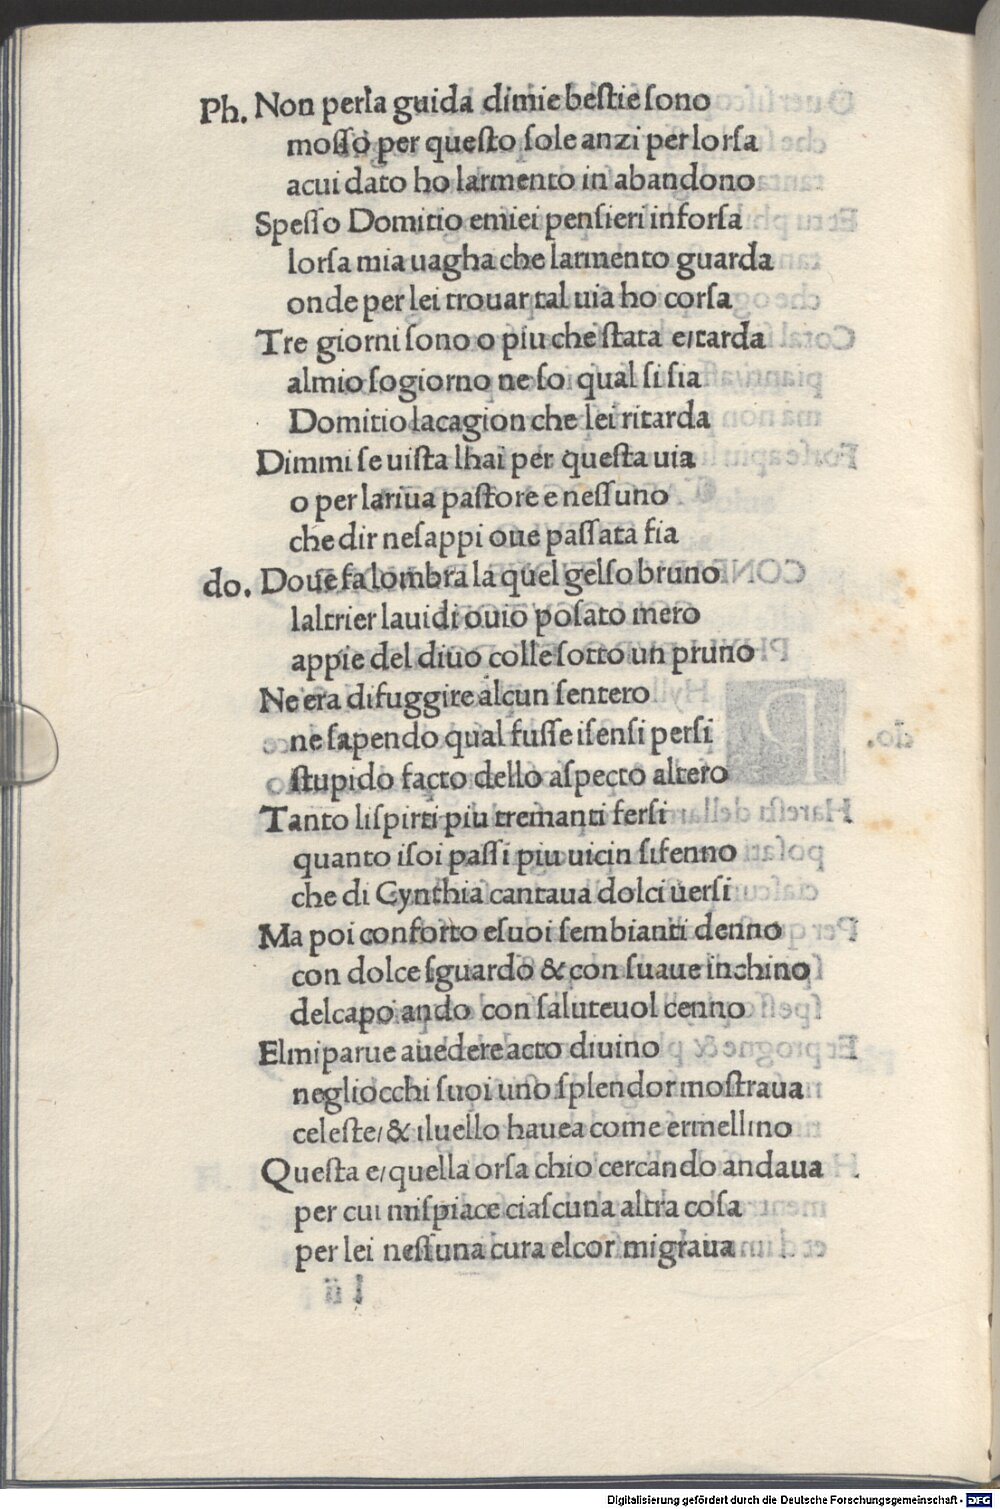 Ph. Non perla guida dimie beſtie ſono
moſſo per queſto ſole anzi per lorſa
acui dato ho larmento in abandono
Speſſo Domitio emiei penſieri inforſa
lorſa mia uagha che larmento guarda
onde per lei trouar tal uia ho corſa
Tre giorni ſono o piu che ſtata e/tarda
almio ſogiorno ne ſo qual ſi ſia
Domitio lacagion che lei ritarda
Dimmi ſe uiſta lhai per queſta uia
o per lariua paſtore e neſſuno
che dir neſappi oue paſſata ſia
do. Doue fa lombra la quel gelſo bruno
laltrier lauidi ouio poſato mero
appie del diuo colle ſotto un pruno
Ne era difuggire alcun ſentero
ne ſapendo qual fuſſe iſenſi perſi
ſtupido facto dello aſpecto altero
Tanto liſpirti piu tremanti ferſi
quanto iſoi paſſi piu uicin ſifenno
che di Cynthia cantaua dolci uerſi
Ma poi conforto eſuoi ſembianti denno
con dolce ſguardo & con ſuaue inchino
delcapo ando con ſaluteuol cenno
Elmiparue auedere acto diuino
negliocchi ſuoi uno ſplendor moſtraua
celeſte/& iluello hauea come ermellino
Queſta e/quella orſa chio cercando andaua
per cui miſpiace ciaſcuna altra coſa
per lei neſſuna cura elcor migraua
Digitalisierung gefördert durch die Deutsche Forschungsgemeinschaft - DFG